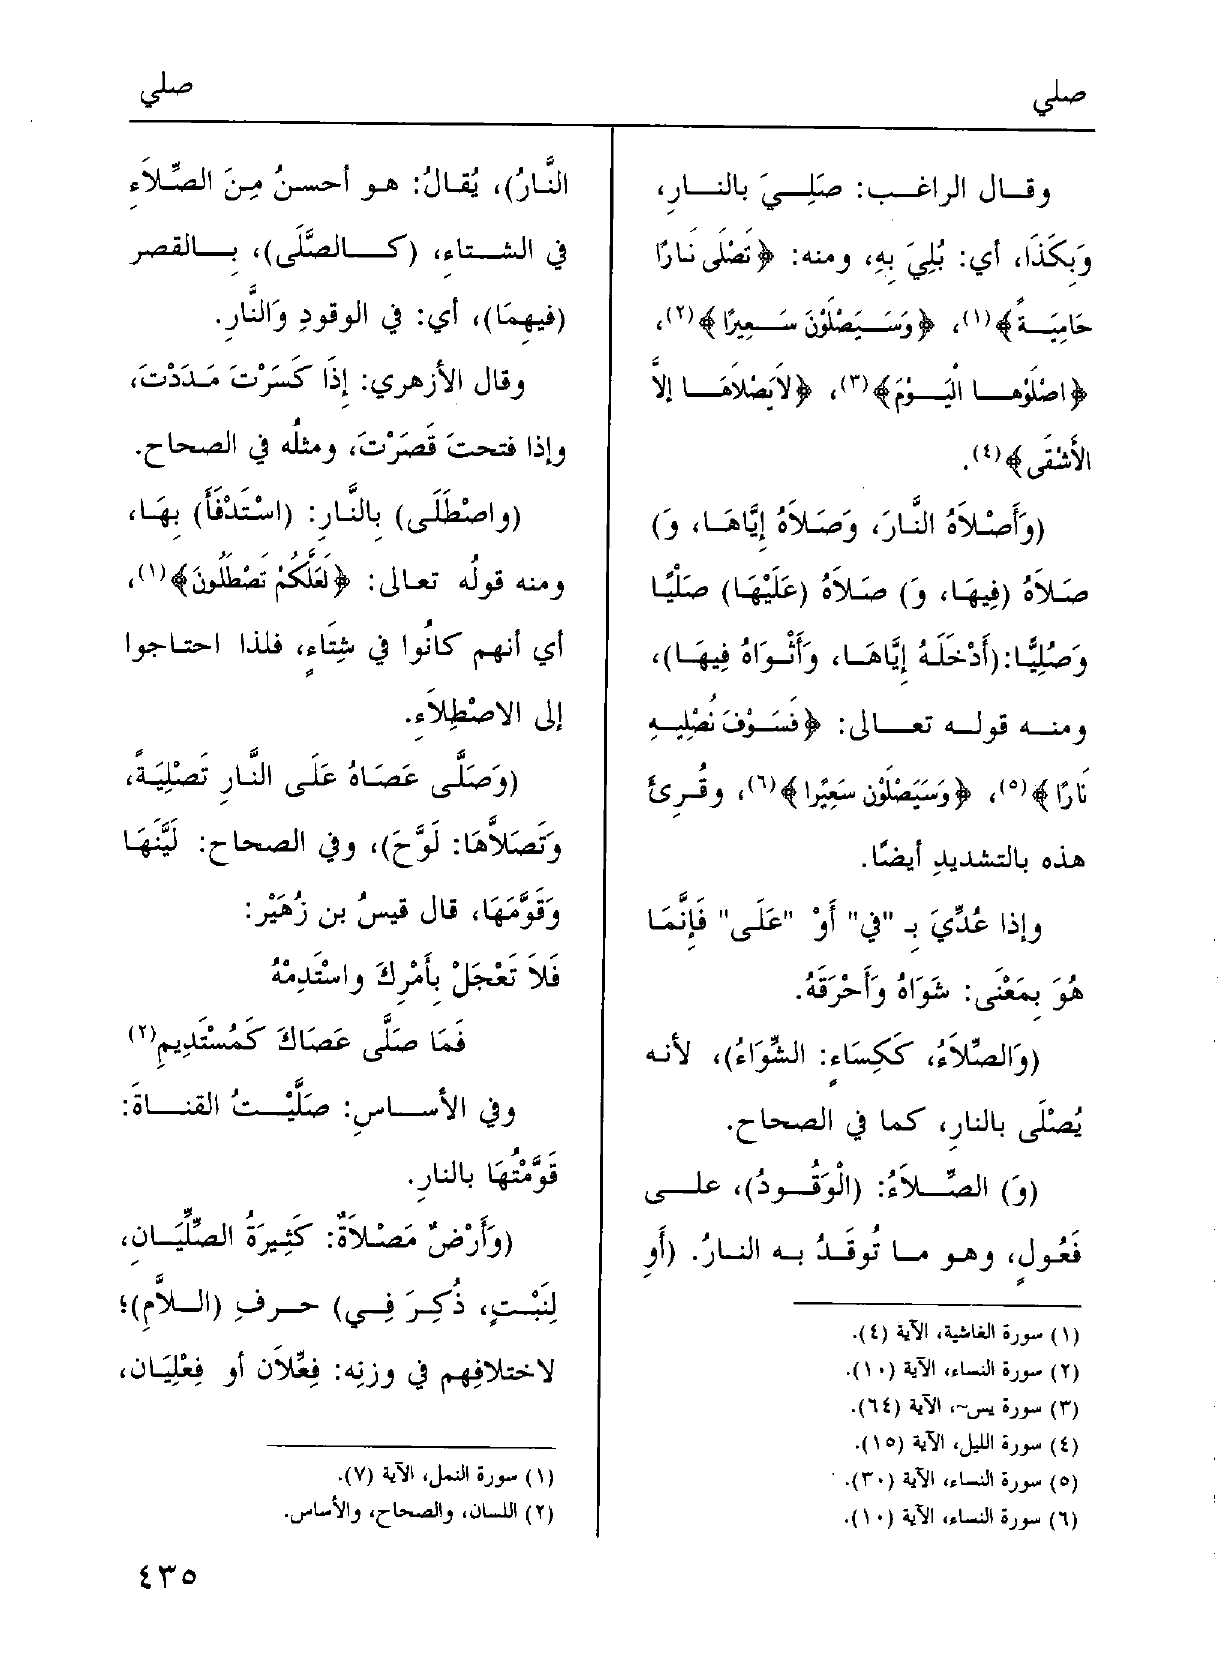 صلي
صلي
وقال الراغب: صَلِيَ بالنارِ،
وَبِكَذَا، أي: بُلِيَ بِهِ، ومنه: ﴿تَصْلَى نَارًا
حَامِيَةً﴾(١)، ﴿وَسَيَصْلَوْنَ سَعِيرًا﴾(٢)،
﴿اصْلَوْهَا الْيَوْمَ﴾(٣)، ﴿لاَيَصْلاَهَا إلاَّ
الأَشْقَى﴾(٤).
(وَأَصْلاَهُ النَّارَ، وَصَلاَهُ إِيَّاهَا، وَ)
صَلاَهُ (فِيهَا، وَ) صَلاَهُ (عَلَيْهَا) صَلْيًا
وَصُلِيًّا:(أَدْخَلَهُ إِيَّاهَا، وَأَثْوَاهُ فِيهَا)،
ومنه قوله تعالى: ﴿فَسَوْفَ نُصْلِيهِ
نَارًا﴾(٥)، ﴿وَسَيَصْلَوْنَ سَعِيْرا﴾(٦)، وقُرِئَ
هذه بالتشديدِ أيضًا.
وإذا عُدِّيَ بِـ "في" أَوْ "عَلَى" فَإِنَّمَا
هُوَ بِمَعْنَى: شَوَاهُ وَأَحْرَقَهُ.
(وَالصِّلاَءُ، كَكِسَاءٍ: الشِّوَاءُ)، لأنه
يُصْلَى بالنارِ، كما في الصحاح.
(وَ) الصِّلاَءُ: (الْوَقُودُ)، على
فَعُولٍ، وهو ما تُوقَدُ به النارُ. (أو
(١) سورة الغاشية، الآية (٤).
(٢) سورة النساء، الآية (١٠).
(٣) سورة يس~، الآية (٦٤).
(٤) سورة الليل، الآية (١٥).
(٥) سورة النساء، الآية (٣٠).
(٦) سورة النساء، الآية (١٠).
النَّارُ)، يُقالُ: هو أحسنُ مِنَ الصِّلاَءِ
في الشتاءِ، (كالصَّلَى)، بِالقصر
(فيهِمَا)، أي: في الوقودِ وَالنَّارِ.
وقال الأزهري: إِذَا كَسَرْتَ مَدَدْتَ،
وإذا فتحتَ قَصَرْتَ، ومثلُه في الصحاح.
(واصْطَلَى) بِالنَّارِ: (اسْتَدْفَأَ) بِهَا،
ومنه قولُه تعالى: ﴿لَعَلَّكُمْ تَصْطَلُونَ﴾(١)،
أي أنهم كانُوا في شِتَاءٍ، فلذا احتاجوا
إلى الاصْطِلاَءِ.
(وَصَلَّى عَصَاهُ عَلَى النَّارِ تَصْلِيَةً،
وَتَصَلاَّهَا: لَوَّحَ)، وفي الصحاح: لَيَّنَهَا
وَقَوَّمَهَا، قال قيسُ بن زُهَيْر:
فَلاَ تَعْجَلْ بِأَمْرِكَ واسْتَدِمْهُ
فَمَا صَلَّى عَصَاكَ كَمُسْتَدِيمِ(٢)
وفي الأساسِ: صَلَّيْتُ القناةَ:
قَوَّمْتُهَا بالنارِ.
(وَأَرْضٌ مَصْلاَةٌ: كَثِيرَةُ الصِّلِّيَانِ،
لِنَبْتٍ، ذُكِرَ فِي) حرفِ (اللاَّمِ)؛
لاختلافِهم في وزنِه: فِعِّلاَن أو فِعْلِيَان،
(١) سورة النمل، الآية (٧).
(٢) اللسان، والصحاح، والأساس.
٤٣٥